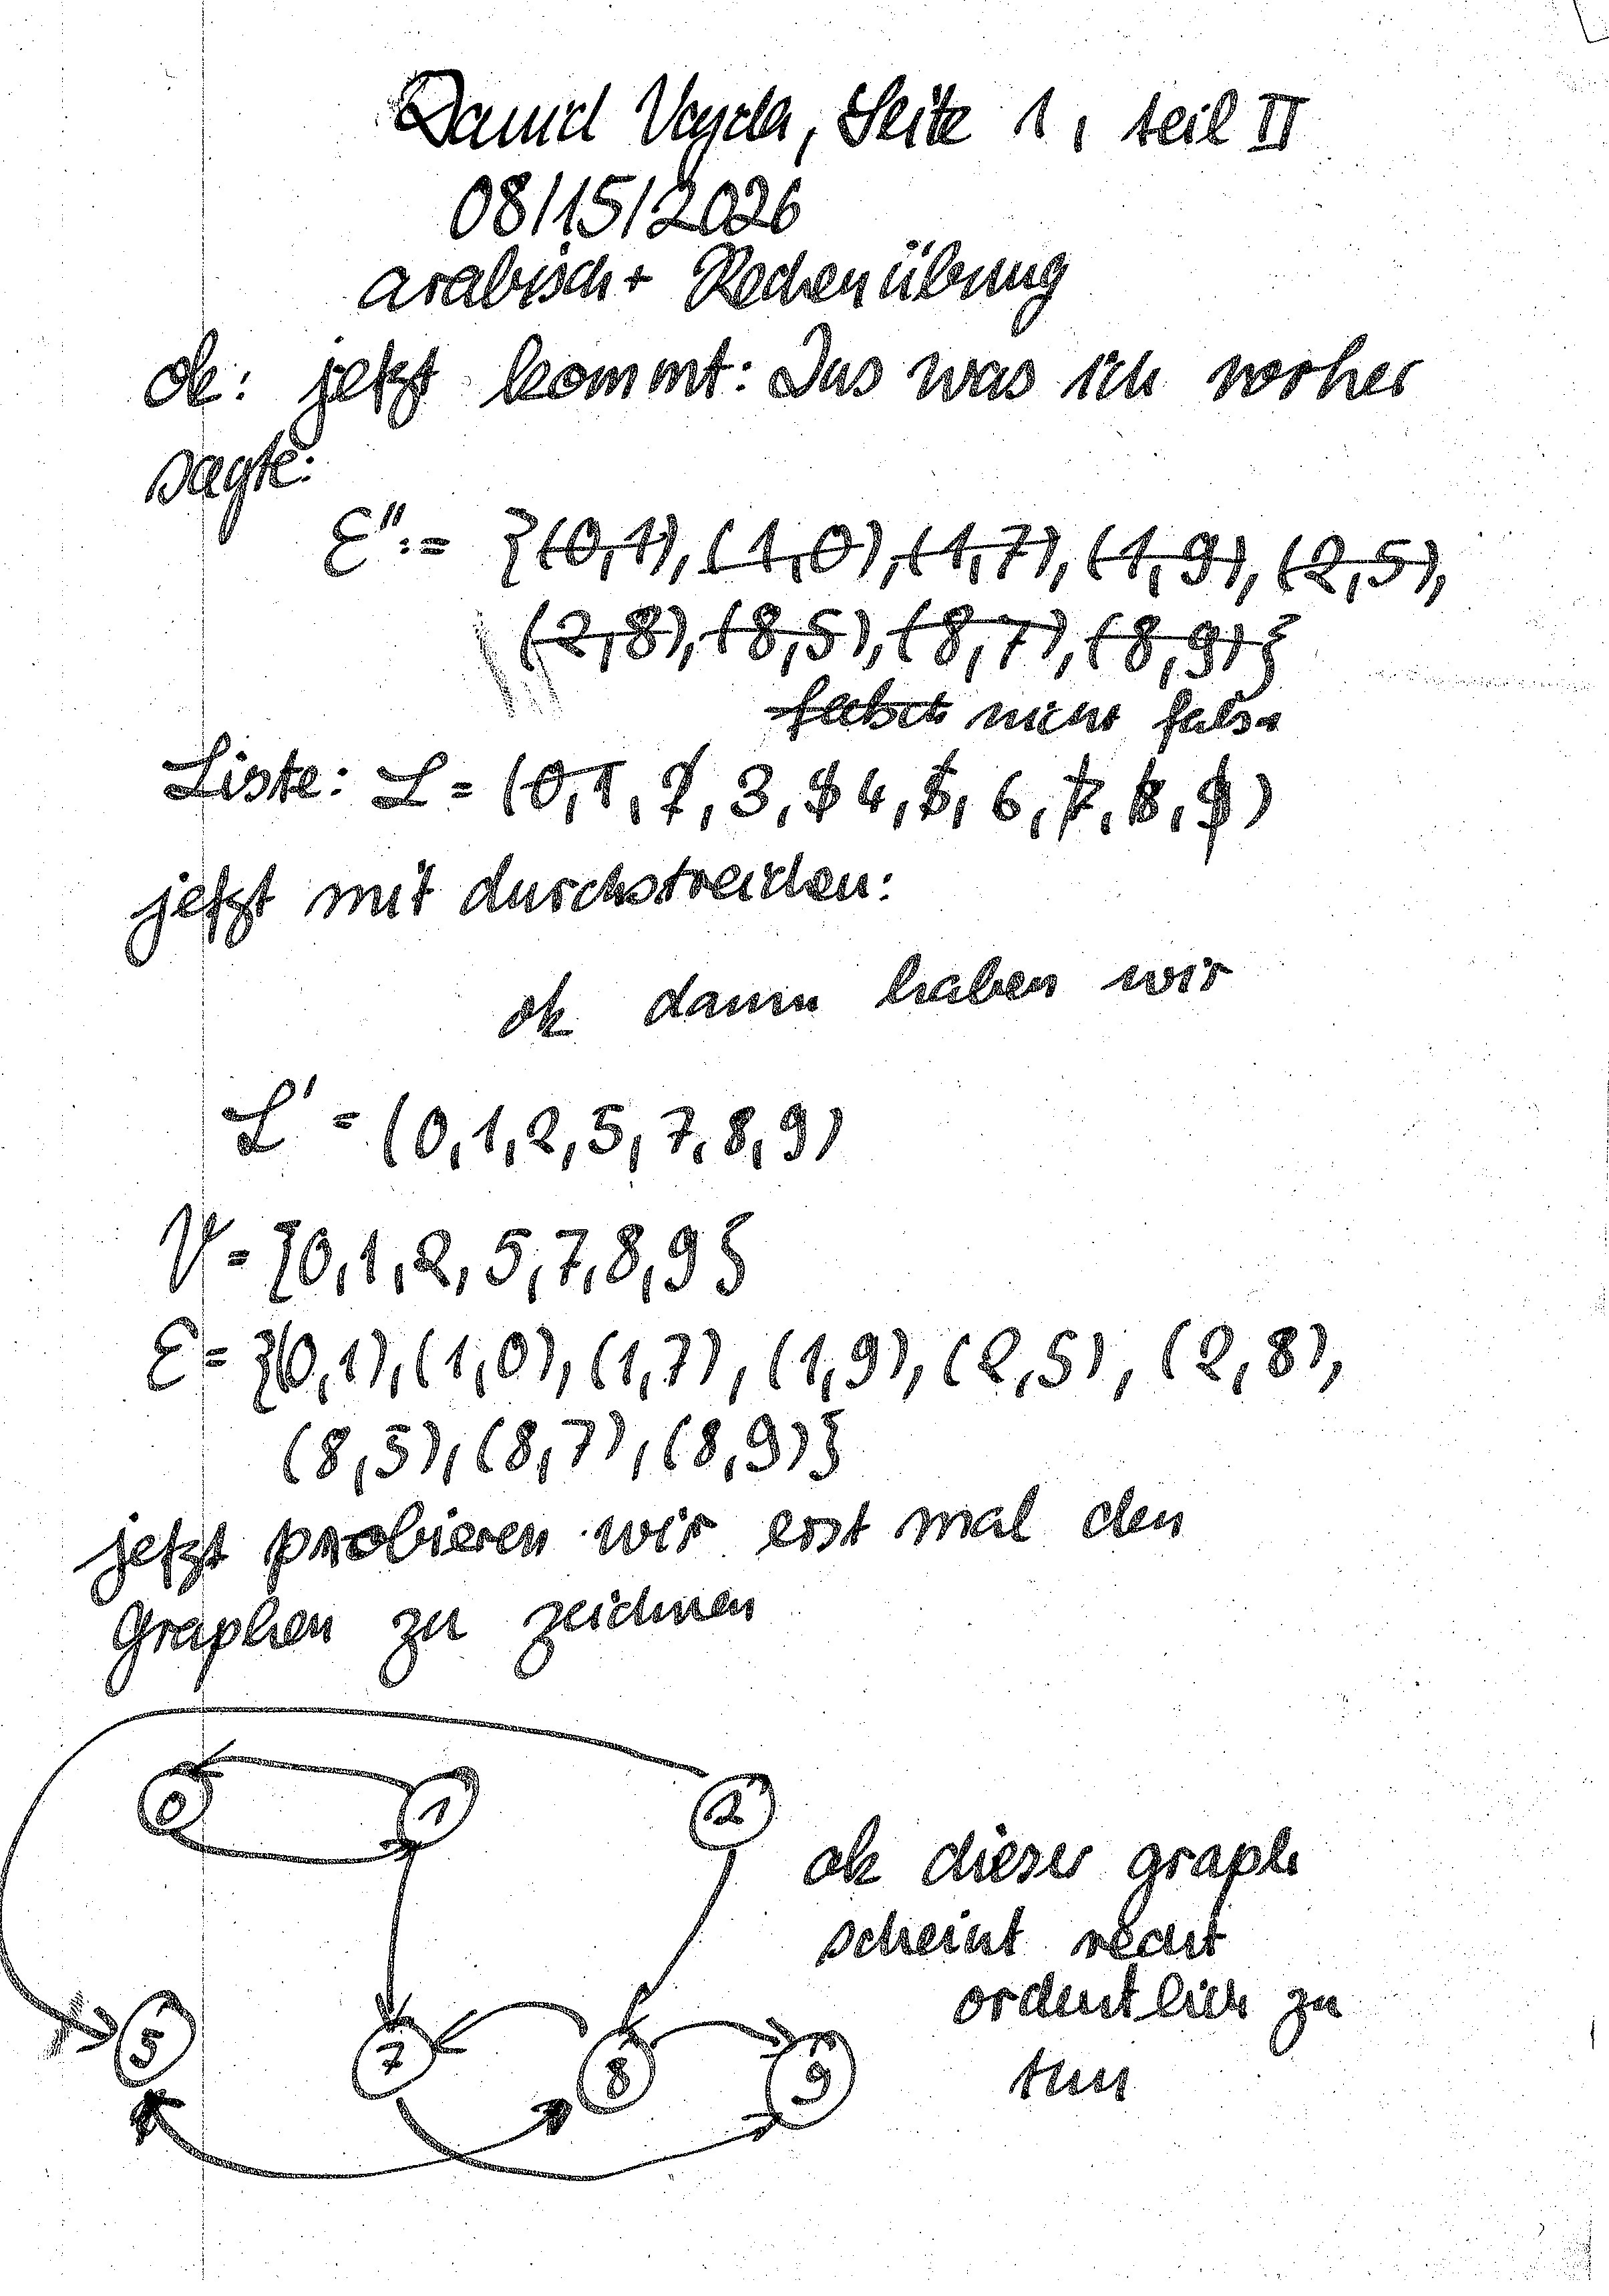 Daniel Vayda, Seite 1, teil II
08/15/2026
arabisch + Rechenübung
ok: jetzt kommt: Das was ich vorher
sagte:
E'' := {(0,1), (1,0), (1,7), (1,9), (2,5),
(2,8), (8,5), (8,7), (8,9)}
nicht
Liste: L = (0, 1, 2, 3, 4, 5, 6, 7, 8, 9)
jetzt mit durchstreichen:
ok dann haben wir
L' = (0,1,2,5,7,8,9)
V = {0,1,2,5,7,8,9}
E = {(0,1), (1,0), (1,7), (1,9), (2,5), (2,8),
(8,5), (8,7), (8,9)}
jetzt probieren wir erst mal den
Graphen zu zeichnen
0 1 2
ok dieser graph
scheint recht
ordentlich zu
tun
5 7 8 9